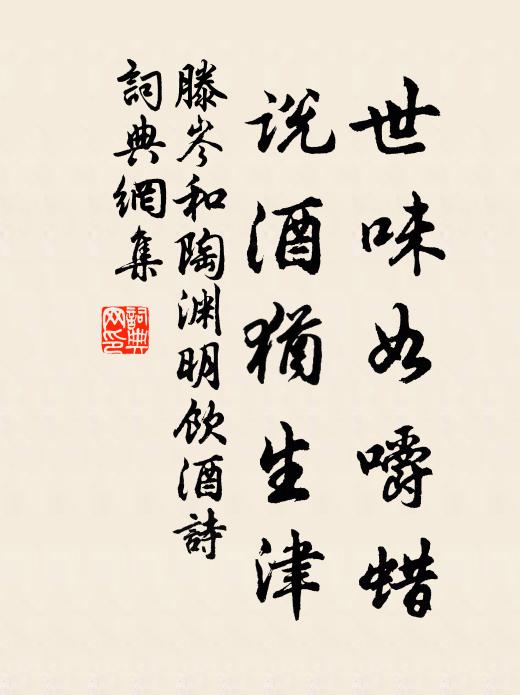 世味如嚼蜡
说酒犹生津
滕岑和陶渊明饮酒詩
词典網集
詞典网印